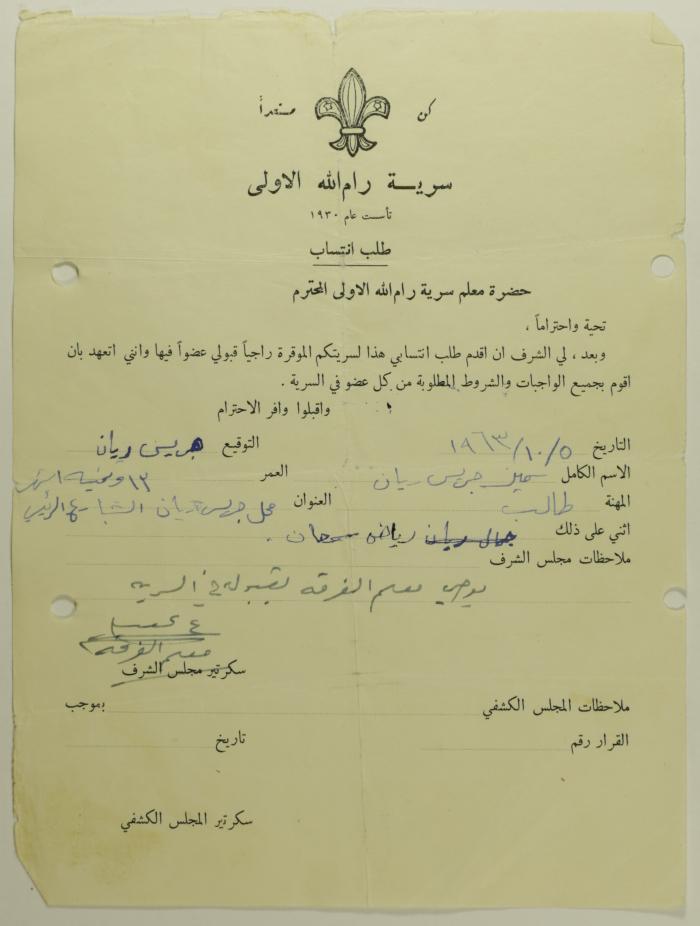 كن مستعداً
سرية رام الله الاولى
تأست عام ١٩٣٠
طلب انتساب
حضرة معلم سرية رام الله الاولى المحترم
تحية واحتراماً ،
وبعد ، لي الشرف ان اقدم طلب انتسابي هذا لسريتكم الموقرة راجياً قبولي عضواً فيها وانني اتعهد بان
اقوم بجميع الواجبات والشروط المطلوبة من كل عضو في السرية .
واقبلوا وافر الاحترام
التاريخ ١٩٦٣/١٠/٥ التوقيع جريس ريان
الاسم الكامل سمير جريس ريان العمر ١٣ وخمسة اشهر
المهنة طالب العنوان محل جريس ريان الشارع الرئيسي
اثني على ذلك جمال ريان رياض سرحان .
ملاحظات مجلس الشرف
يوصي معلم الفرقة بقبوله في السرية
معلم الفرقة
سكرتير مجلس الشرف
ملاحظات المجلس الكشفي بموجب
القرار رقم تاريخ
سكرتير المجلس الكشفي